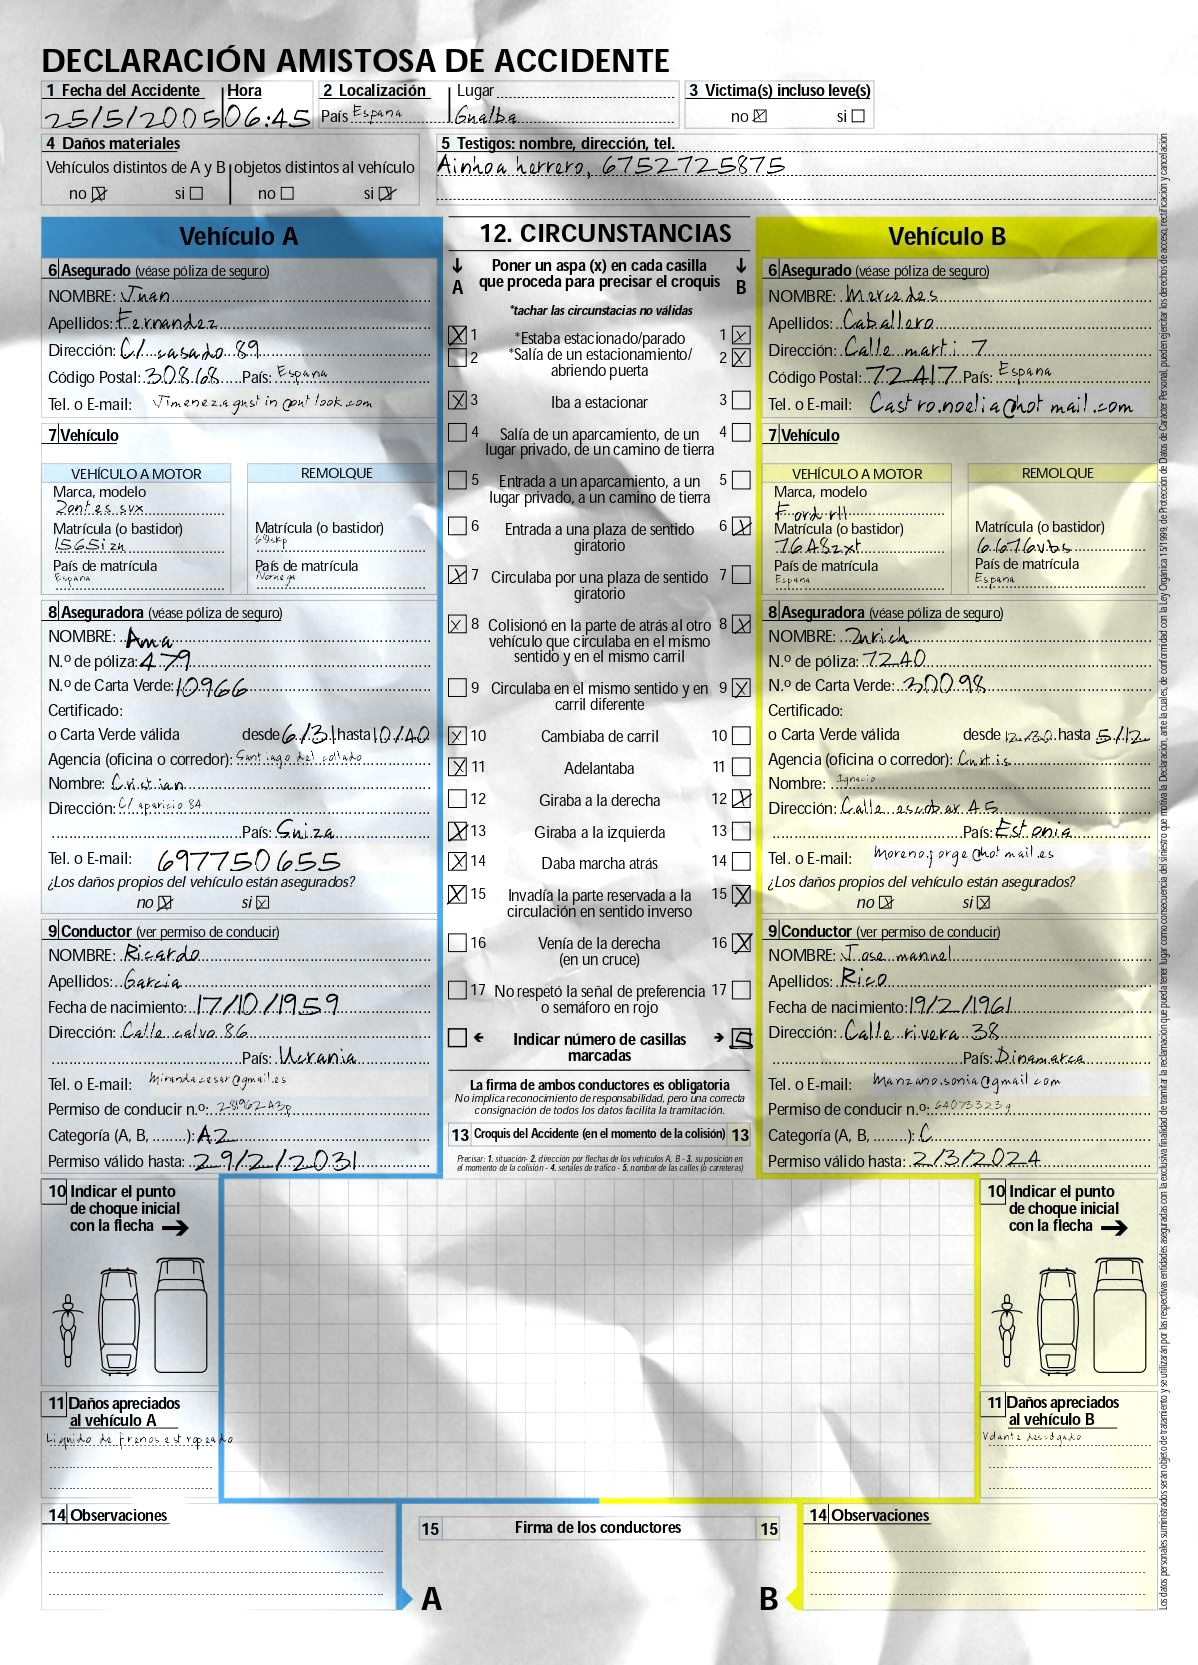 DECLARACIÓN AMISTOSA DE ACCIDENTE
1 Fecha del Accidente Hora
25/5/2005 06:45
2 Localización Lugar
País Espana Gualba
3 Victima(s) incluso leve(s)
no ☒ si ☐
4 Daños materiales
Vehículos distintos de A y B objetos distintos al vehículo
no ☒ si ☐ no ☐ si ☒
5 Testigos: nombre, dirección, tel.
Ainhoa herrero, 6752725875
Vehículo A
6 Asegurado (véase póliza de seguro)
NOMBRE: Juan
Apellidos: Fernandez
Dirección: C/ casado 89
Código Postal: 30868 País: Espana
Tel. o E-mail: Jimenez.agustin@outlook.com
7 Vehículo
VEHÍCULO A MOTOR REMOLQUE
Marca, modelo
Zontes svx
Matrícula (o bastidor) Matrícula (o bastidor)
1565izn
País de matrícula País de matrícula
Espana Noruega
8 Aseguradora (véase póliza de seguro)
NOMBRE: Ama
N.º de póliza: 479
N.º de Carta Verde: 10966
Certificado:
o Carta Verde válida desde 6/31 hasta 10/40
Agencia (oficina o corredor): Santiago del collado
Nombre: Cristian
Dirección: C/ aparicio 84
País: Suiza
Tel. o E-mail: 697750655
¿Los daños propios del vehículo están asegurados?
no ☒ si ☒
9 Conductor (ver permiso de conducir)
NOMBRE: Ricardo
Apellidos: Garcia
Fecha de nacimiento: 17/10/1959
Dirección: Calle calvo 86
País: Ucrania
Tel. o E-mail: Mirandacesar@gmail.es
Permiso de conducir n.º: 28196243p
Categoría (A, B, ........): A2
Permiso válido hasta: 29/2/2031
10 Indicar el punto
de choque inicial
con la flecha →
11 Daños apreciados
al vehículo A
Liquido de frenos estropeado
14 Observaciones
12. CIRCUNSTANCIAS
↓ A Poner un aspa (x) en cada casilla ↓ B
que proceda para precisar el croquis
*tachar las circunstacias no válidas
☒ 1 *Estaba estacionado/parado 1 ☒
☐ 2 *Salía de un estacionamiento/ 2 ☒
abriendo puerta
☒ 3 Iba a estacionar 3 ☐
☐ 4 Salía de un aparcamiento, de un 4 ☐
lugar privado, de un camino de tierra
☐ 5 Entrada a un aparcamiento, a un 5 ☐
lugar privado, a un camino de tierra
☐ 6 Entrada a una plaza de sentido 6 ☒
giratorio
☒ 7 Circulaba por una plaza de sentido 7 ☐
giratorio
☒ 8 Colisionó en la parte de atrás al otro 8 ☒
vehículo que circulaba en el mismo
sentido y en el mismo carril
☐ 9 Circulaba en el mismo sentido y en 9 ☒
carril diferente
☒ 10 Cambiaba de carril 10 ☐
☒ 11 Adelantaba 11 ☐
☐ 12 Giraba a la derecha 12 ☒
☒ 13 Giraba a la izquierda 13 ☐
☒ 14 Daba marcha atrás 14 ☐
☒ 15 Invadía la parte reservada a la 15 ☒
circulación en sentido inverso
☐ 16 Venía de la derecha 16 ☒
(en un cruce)
☐ 17 No respetó la señal de preferencia 17 ☐
o semáforo en rojo
☐ ← Indicar número de casillas → 5
marcadas
La firma de ambos conductores es obligatoria
No implica reconocimiento de responsabilidad, pero una correcta
consignación de todos los datos facilita la tramitación.
13 Croquis del Accidente (en el momento de la colisión) 13
Precisar: 1. situación- 2. dirección por flechas de los vehículos A, B - 3. su posición en
el momento de la colisión - 4. señales de tráfico - 5. nombre de las calles (o carreteras)
15 Firma de los conductores 15
A B
Vehículo B
6 Asegurado (véase póliza de seguro)
NOMBRE: Mercedes
Apellidos: Caballero
Dirección: Calle marti 7
Código Postal: 72417 País: Espana
Tel. o E-mail: Castro.noelia@hotmail.com
7 Vehículo
VEHÍCULO A MOTOR REMOLQUE
Marca, modelo
Ford rll
Matrícula (o bastidor) Matrícula (o bastidor)
7648zxt 6676vbs
País de matrícula País de matrícula
Espana Espana
8 Aseguradora (véase póliza de seguro)
NOMBRE: Zurich
N.º de póliza: 7240
N.º de Carta Verde: 30098
Certificado:
o Carta Verde válida desde 12/30 hasta 5/12
Agencia (oficina o corredor): Curtis
Nombre: Ignacio
Dirección: Calle escobar 45
País: Estonia
Tel. o E-mail: Moreno.jorge@hotmail.es
¿Los daños propios del vehículo están asegurados?
no ☒ si ☒
9 Conductor (ver permiso de conducir)
NOMBRE: Jose manuel
Apellidos: Rico
Fecha de nacimiento: 19/2/1961
Dirección: Calle rivera 38
País: Dinamarca
Tel. o E-mail: Manzano.sonia@gmail.com
Permiso de conducir n.º: 64073323g
Categoría (A, B, ........): C
Permiso válido hasta: 2/3/2024
10 Indicar el punto
de choque inicial
con la flecha →
11 Daños apreciados
al vehículo B
Volante descolgado
14 Observaciones
Los datos personales suministrados serán objeto de tratamiento y se utilizarán por las respectivas entidades aseguradas con la exclusiva finalidad de tramitar la reclamación que pueda tener lugar como consecuencia del siniestro que motiva la Declaración, ante la cuales, de conformidad con la Ley Orgánica 15/1999, de Protección de Datos de Carácter Personal, pueden ejercitar los derechos de acceso, rectificación y cancelación